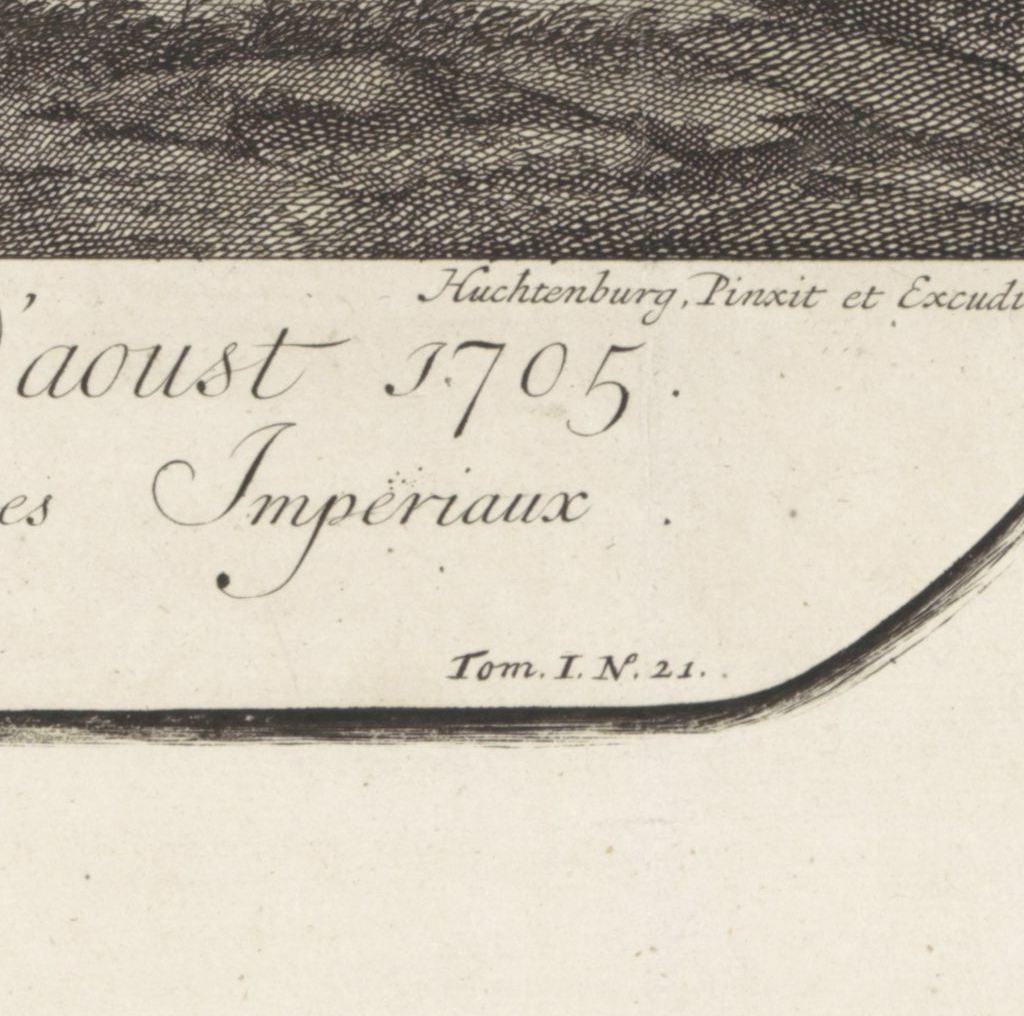 Huchtenburg, Pinxit et Excudi
'aoust 1705.
es Imperiaux.
Tom. I. No. 21.